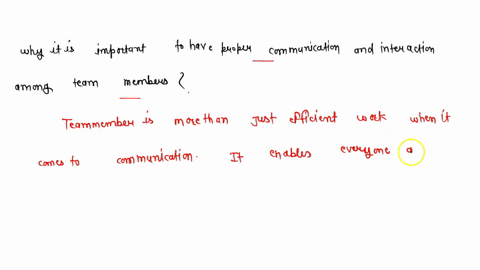 why it is important to have proper communication and interaction
among team members ?
Teammember is more than just efficient work when it
comes to communication. It enables everyone a